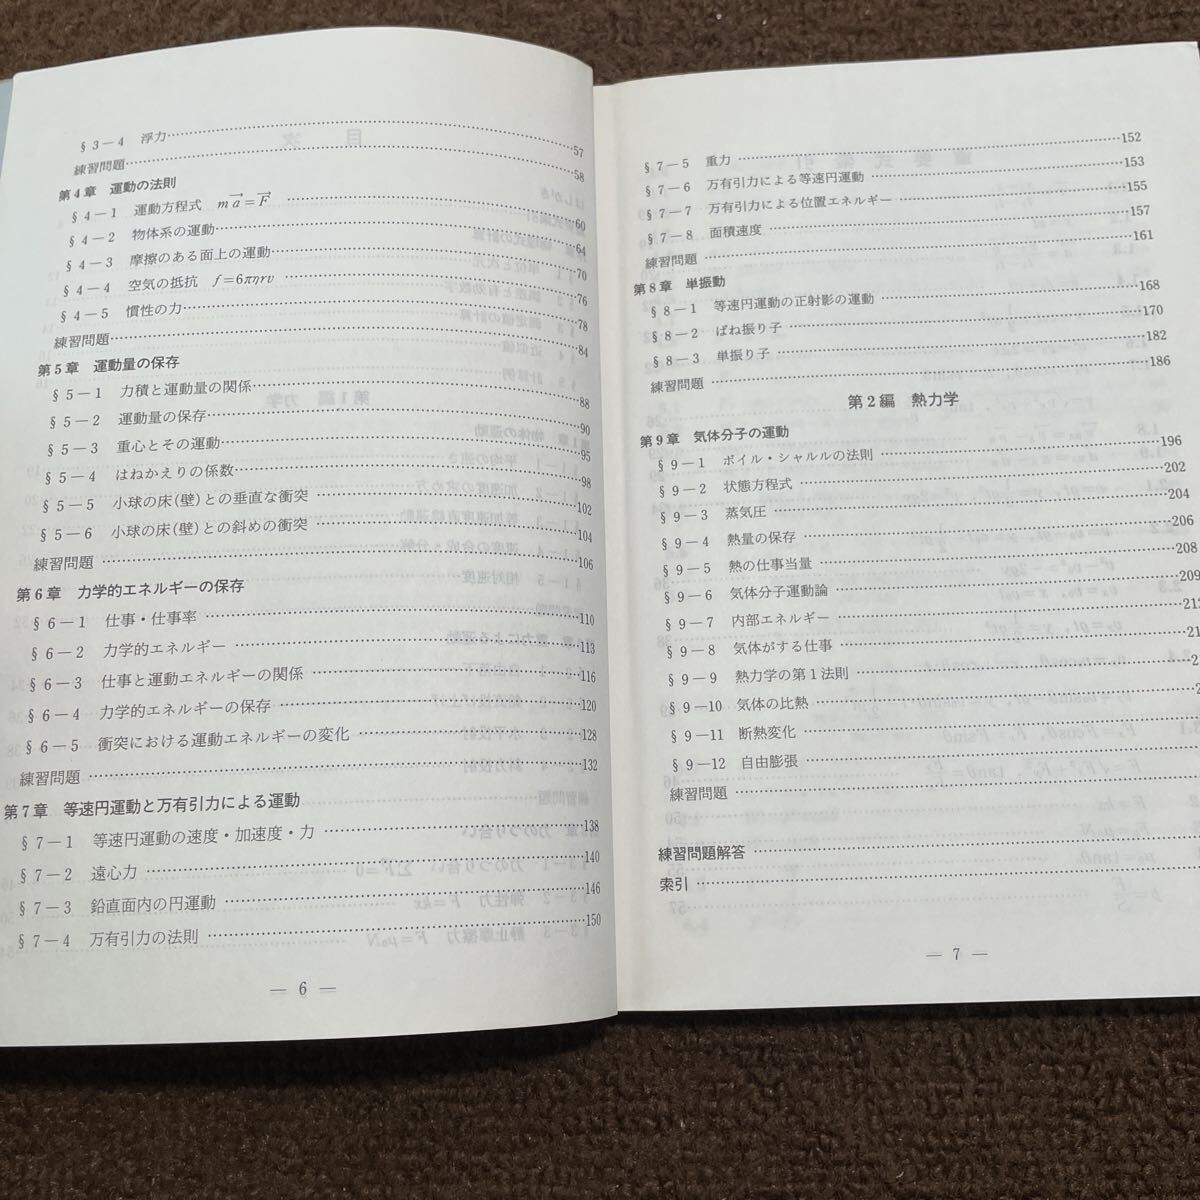 §3－4　浮力……57
練習問題……58
第4章　運動の法則
§4－1　運動方程式　ma=F……60
§4－2　物体系の運動……64
§4－3　摩擦のある面上の運動……70
§4－4　空気の抵抗　f=6πηrv……76
§4－5　慣性の力……78
練習問題……84
第5章　運動量の保存
§5－1　力積と運動量の関係……88
§5－2　運動量の保存……90
§5－3　重心とその運動……95
§5－4　はねかえりの係数……98
§5－5　小球の床(壁)との垂直な衝突……102
§5－6　小球の床(壁)との斜めの衝突……104
練習問題……106
第6章　力学的エネルギーの保存
§6－1　仕事・仕事率……110
§6－2　力学的エネルギー……113
§6－3　仕事と運動エネルギーの関係……116
§6－4　力学的エネルギーの保存……120
§6－5　衝突における運動エネルギーの変化……128
練習問題……132
第7章　等速円運動と万有引力による運動
§7－1　等速円運動の速度・加速度・力……138
§7－2　遠心力……140
§7－3　鉛直面内の円運動……146
§7－4　万有引力の法則……150
— 6 —
§7－5　重力……152
§7－6　万有引力による等速円運動……153
§7－7　万有引力による位置エネルギー……155
§7－8　面積速度……157
練習問題……161
第8章　単振動
§8－1　等速円運動の正射影の運動……168
§8－2　ばね振り子……170
§8－3　単振り子……182
練習問題……186
第2編　熱力学
第9章　気体分子の運動
§9－1　ボイル・シャルルの法則……196
§9－2　状態方程式……202
§9－3　蒸気圧……204
§9－4　熱量の保存……206
§9－5　熱の仕事当量……208
§9－6　気体分子運動論……209
§9－7　内部エネルギー……212
§9－8　気体がする仕事……21
§9－9　熱力学の第1法則……2
§9－10　気体の比熱……2
§9－11　断熱変化……
§9－12　自由膨張……
練習問題……
練習問題解答……
索引……
— 7 —